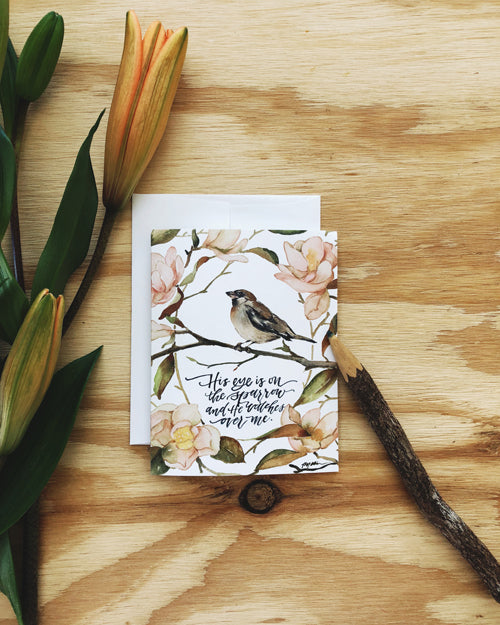 His eye is on
the sparrow
and He watches
over me.